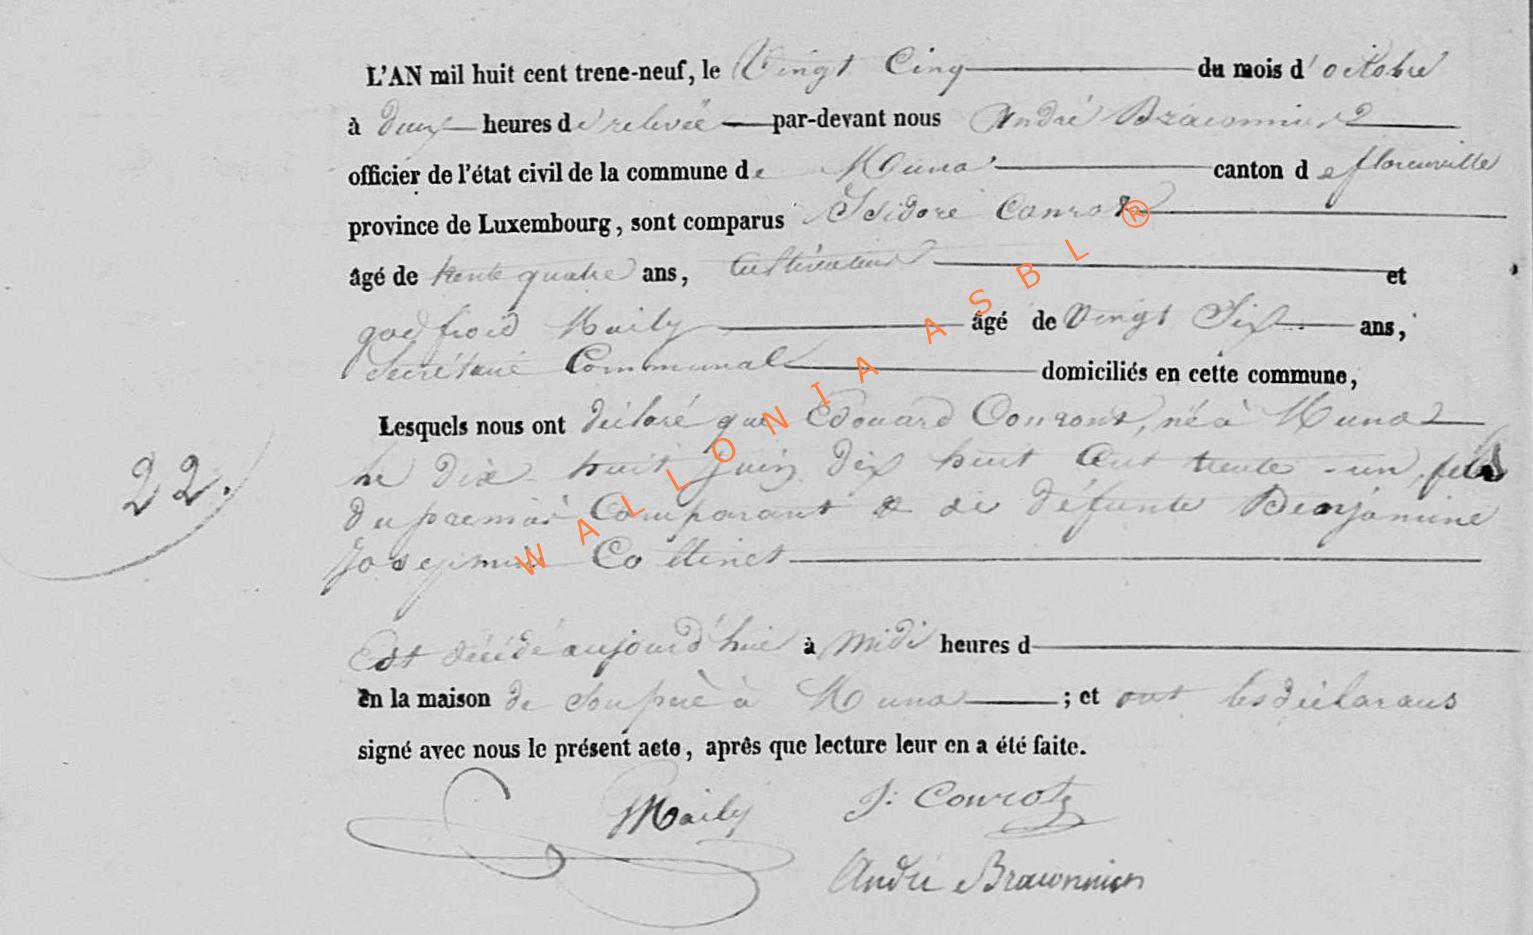 L'AN mil huit cent trene-neuf, le Vingt Cinq du mois d'octobre
à deux heures de relevée par-devant nous André Braconnier
officier de l'état civil de la commune de Muno canton de florenville
province de Luxembourg, sont comparus Isidore Conrot
âgé de trente quatre ans, Cultivateur et
godfroid Maily âgé de Vingt Six ans,
Secrétaire Communal domiciliés en cette commune,
Lesquels nous ont déclaré que Edouard Conrot, né à Muno
le dix huit juin dix huit Cent trente-un, fils
22.
du premier Comparant & de défunte Benjamine
Josephine Collinet
Est décédé aujourd'hui à midi heures d
en la maison de son père à Muno ; et ont les déclarans
signé avec nous le présent acte, après que lecture leur en a été faite.
Maily J: Conrotz
André Braconnier
WALLONIA ASBL ®